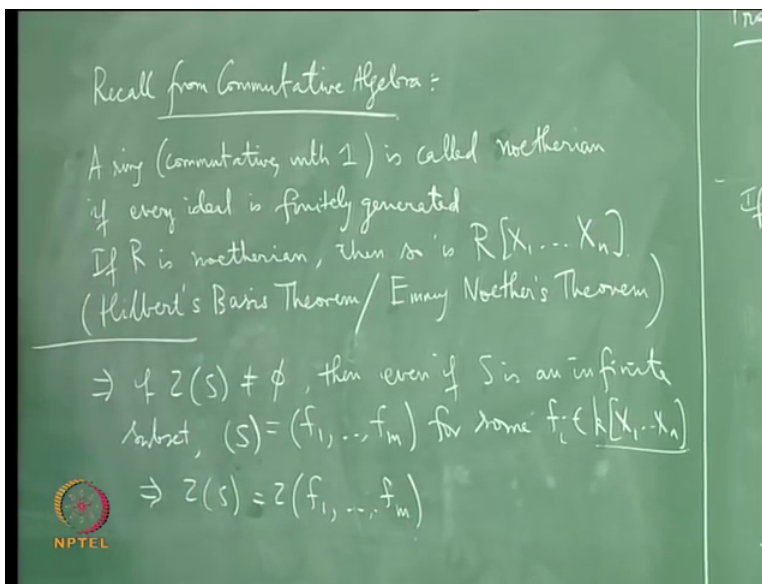 Recall from Commutative Algebra:
A ring (commutative, with 1) is called noetherian
if every ideal is finitely generated
If R is noetherian, then so is R[X₁...Xₙ].
(Hilbert's Basis Theorem/Emmy Noether's Theorem)
⇒ if Z(S) ≠ φ, then even if S is an infinite
subset, (S) = (f₁, .., fₘ) for some fᵢ ∈ k[X₁..Xₙ]
⇒ Z(S) = Z(f₁, ..., fₘ)
NPTEL
If